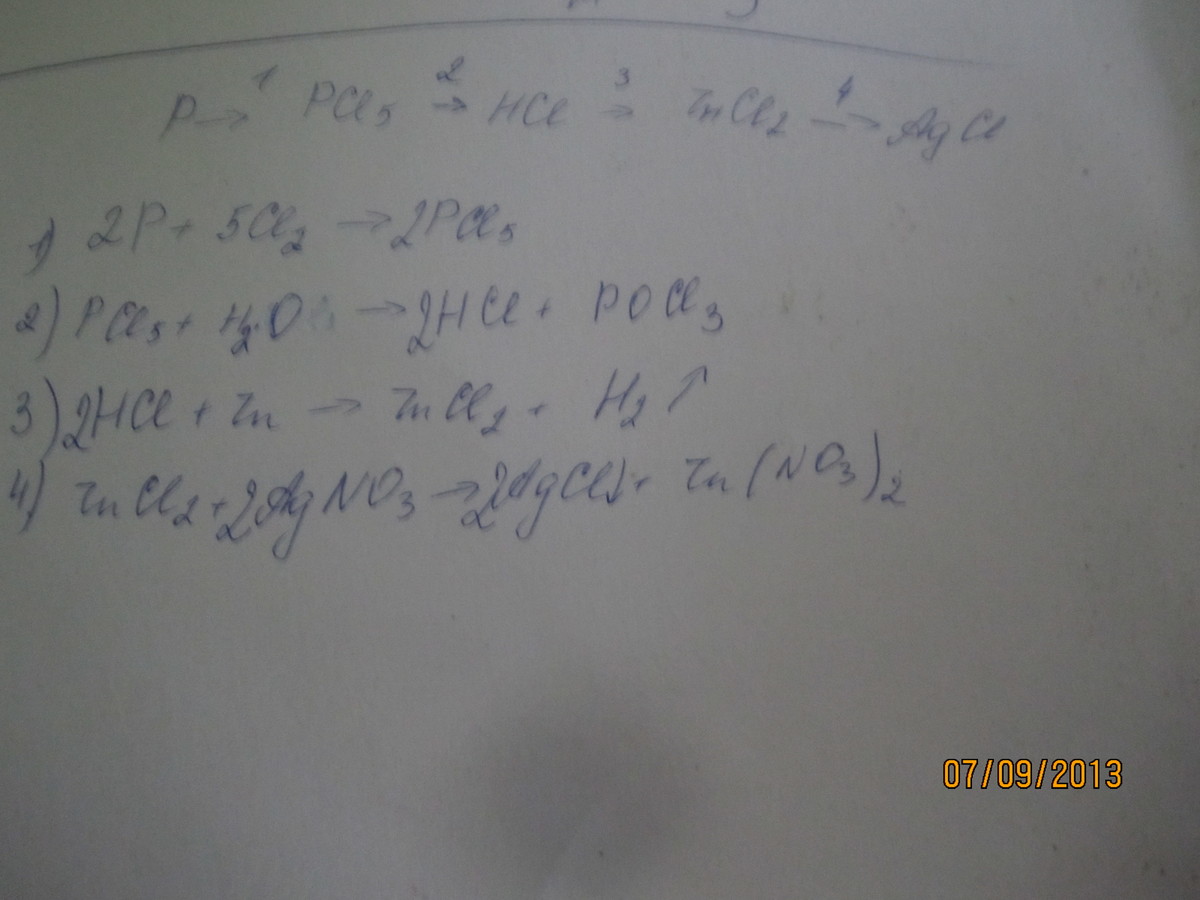 P →¹ PCl₅ →² HCl →³ ZnCl₂ →⁴ AgCl
1) 2P + 5Cl₂ → 2PCl₅
2) PCl₅ + H₂O → 2HCl + POCl₃
3) 2HCl + Zn → ZnCl₂ + H₂↑
4) ZnCl₂ + 2AgNO₃ → 2AgCl↓ + Zn(NO₃)₂
07/09/2013